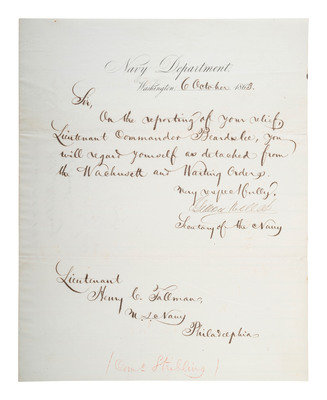 Navy Department,
Washington, 6 October 1863.
Sir,
On the reporting of your relief,
Lieutenant Commander Beardslee, you
will regard yourself as detached from
the Wachusett and Waiting Orders.
Very respectfully,
Gideon Welles
Secretary of the Navy
Lieutenant
Henry C. Tallman,
U. S. Navy
Philadelphia
(Com'r Stribling.)